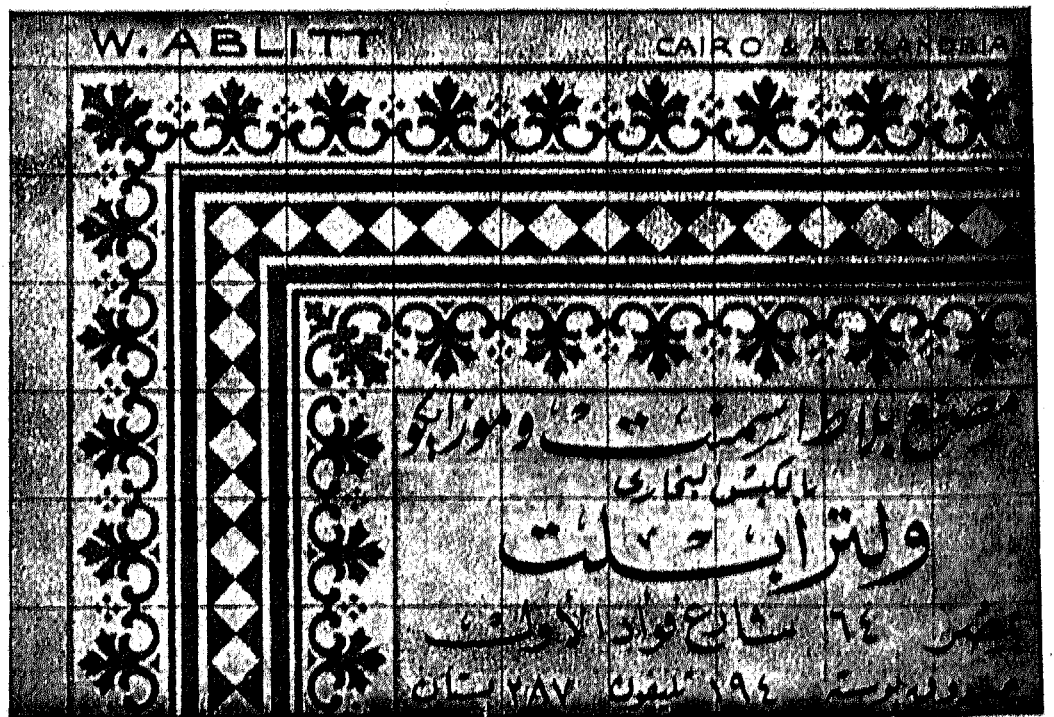 W. ABLITT CAIRO & ALEXANDRIA
مصنع بلاط اسمنت وموزايكو
بالكبس البخارى
ولتر ابلت
مصر ٦٤ شارع فؤاد الأول
صندوق بوسته ١٩٤ تليفون ٢٨٧ بستان